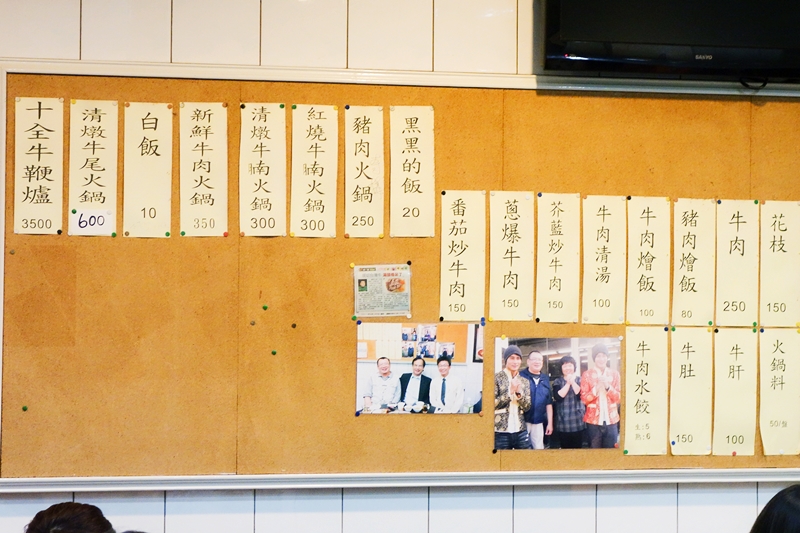 SANYO
十全牛鞭爐
3500
清燉牛尾火鍋
600
白飯
10
新鮮牛肉火鍋
350
清燉牛腩火鍋
300
紅燒牛腩火鍋
300
豬肉火鍋
250
黑黑的飯
20
番茄炒牛肉
150
蔥爆牛肉
150
芥藍炒牛肉
150
牛肉清湯
100
牛肉燴飯
100
豬肉燴飯
80
牛肉
250
花枝
150
牛肉水餃
生:5
熟:6
牛肚
150
牛肝
100
火鍋料
50/盤